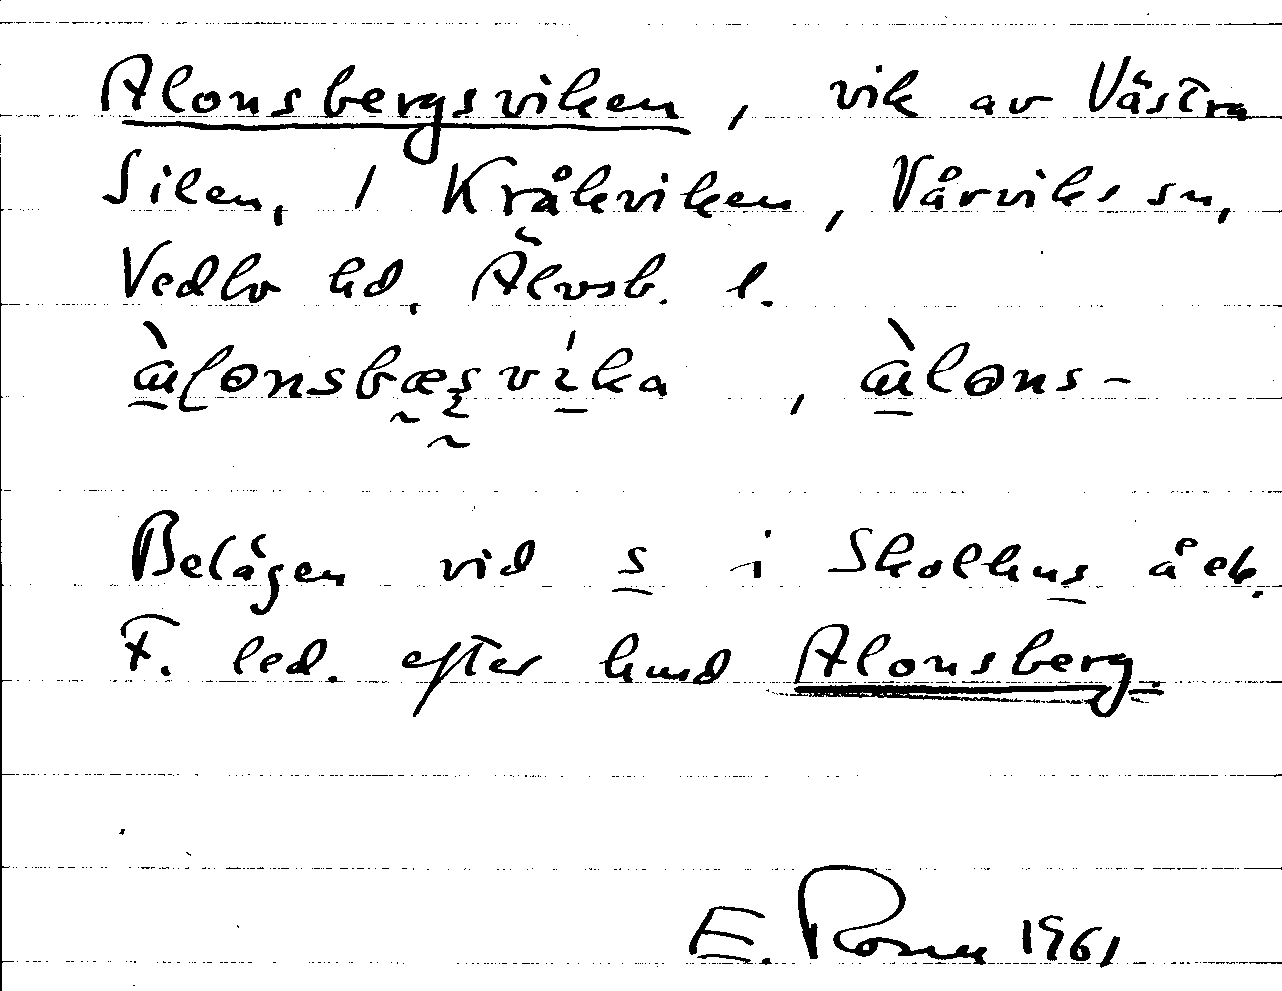 Alonsbergsviken, vik av Västra
Silen, / Kråkviken, Vårviks sn,
Vedbo hd. Älvsb. l.
àlonsbæsvíka, àlons-
Belägen vid s i Skolhus å ek.
F. led. efter hmd Alonsberg.
E. Rosell 1961